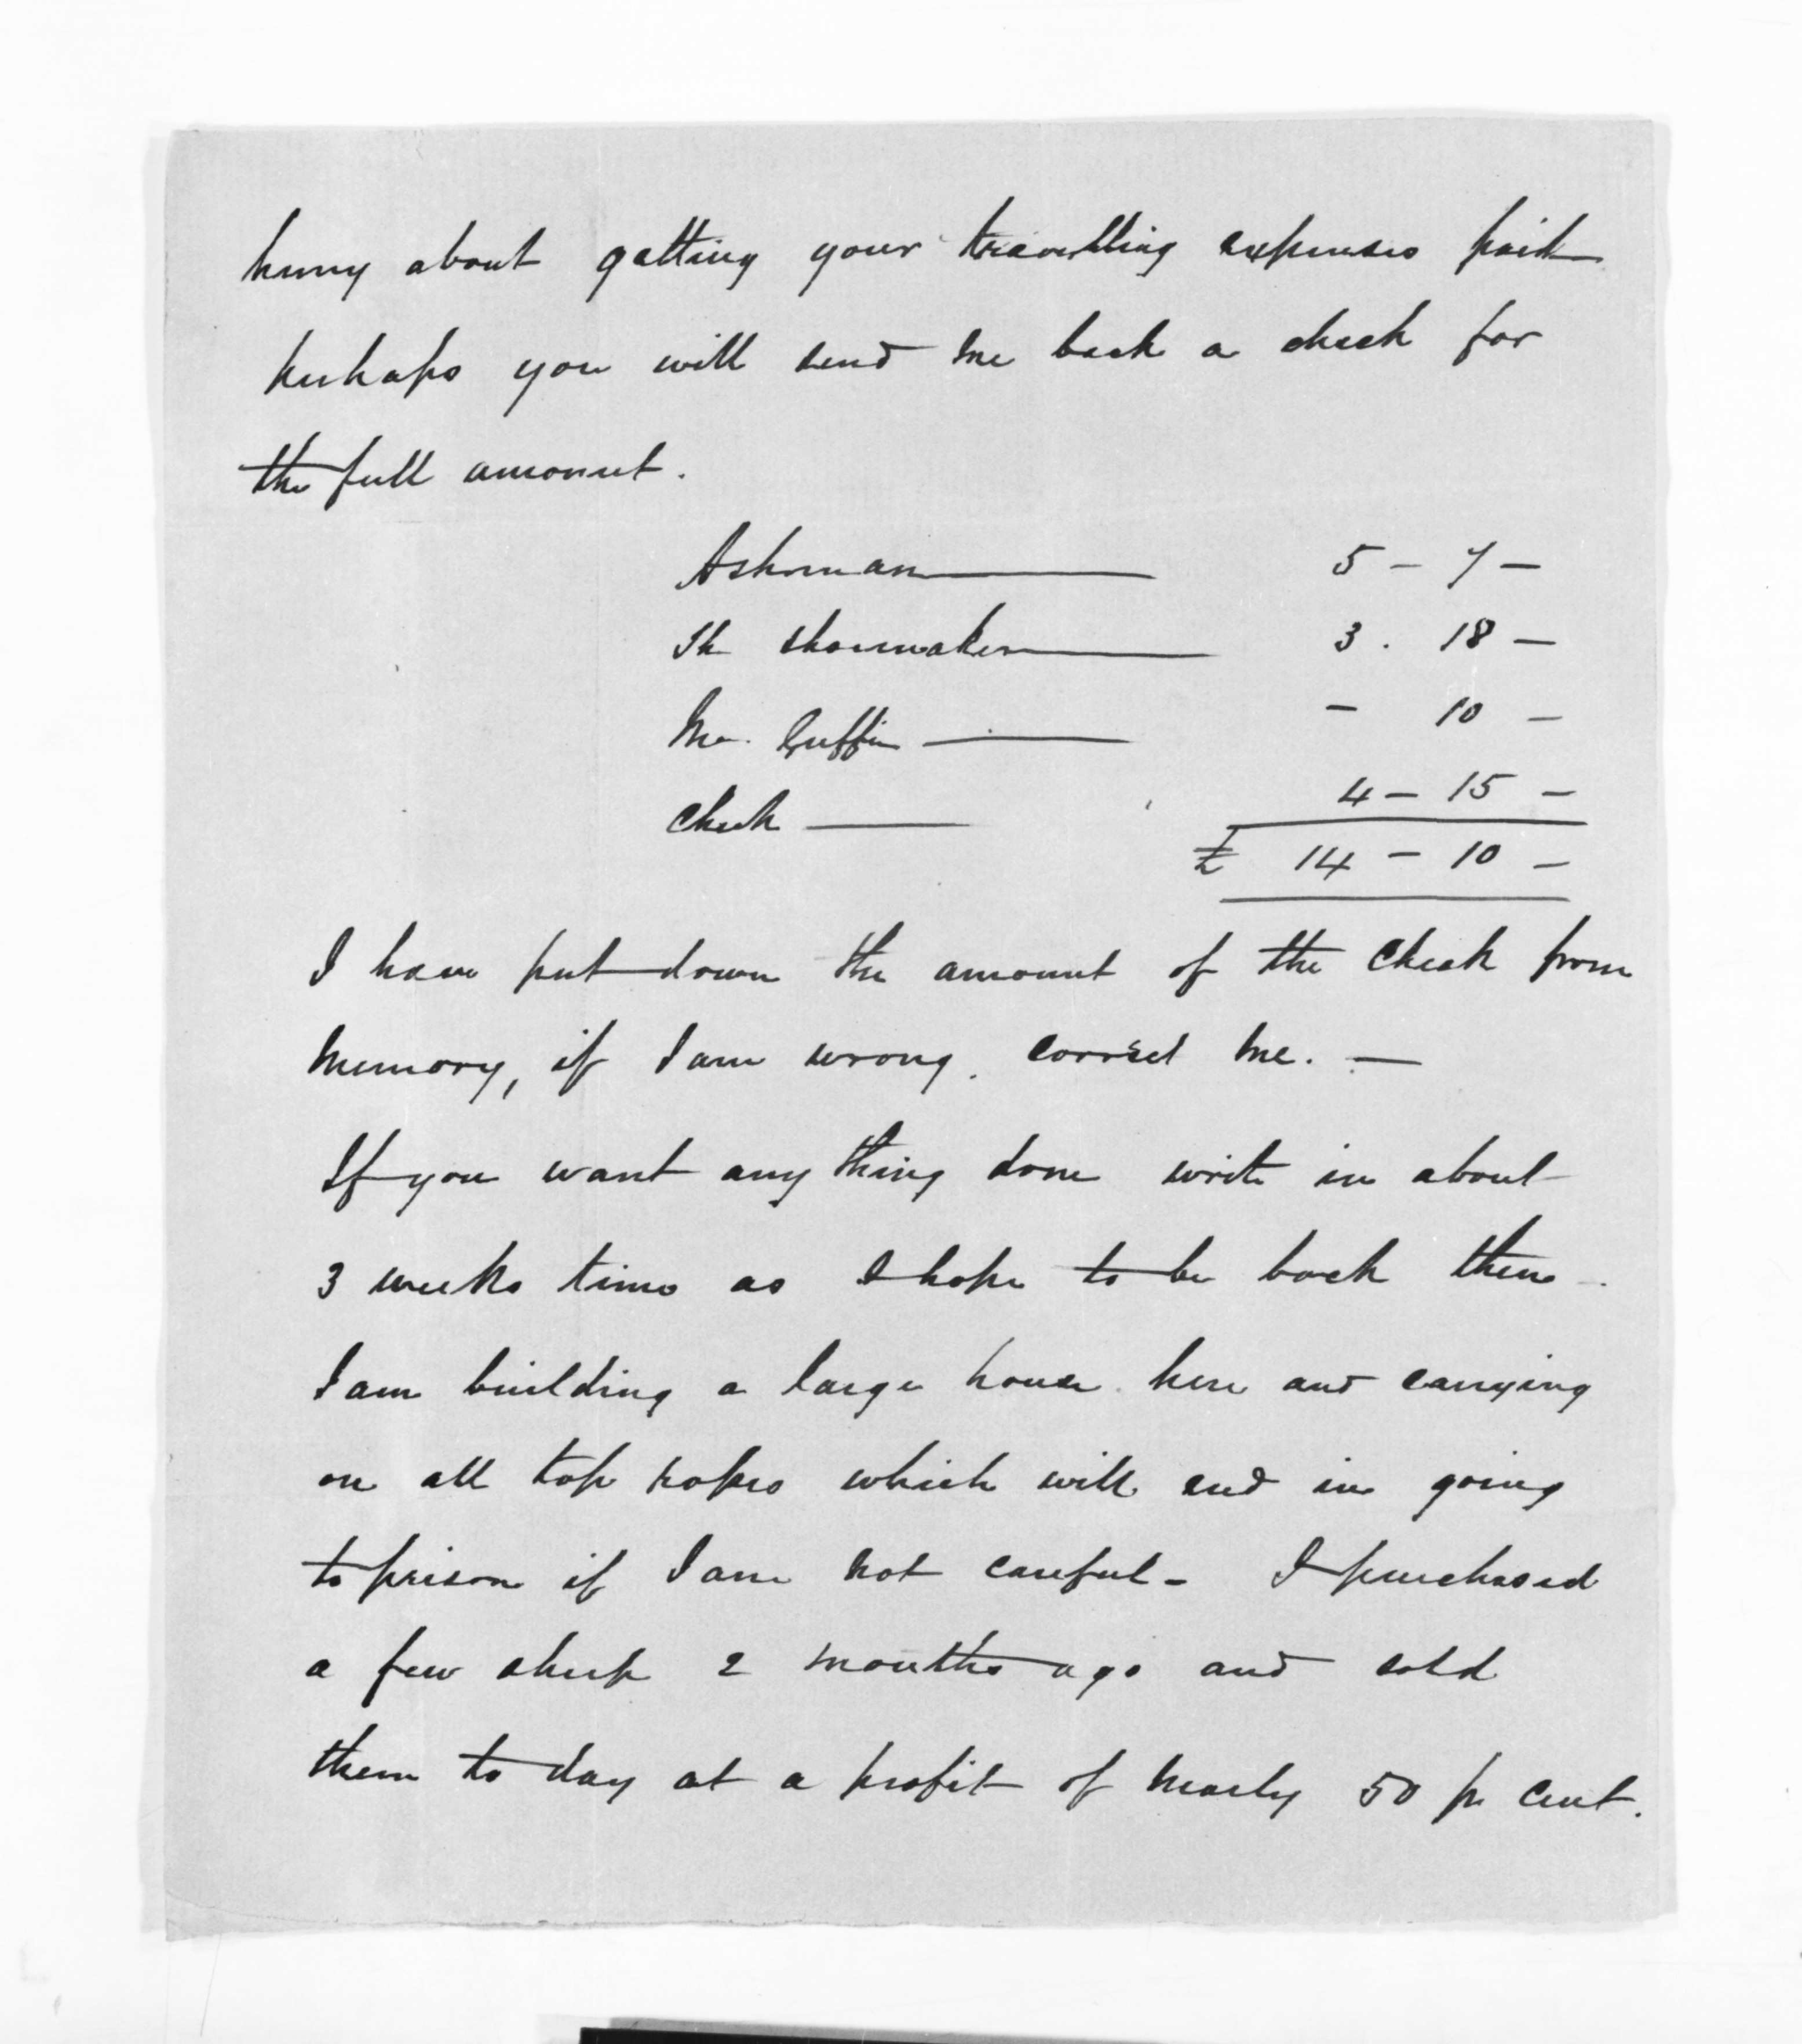 hurry about getting your travelling expenses paid
perhaps you will send me back a check for
the full amount.
Ashman 5 - 7 -
The shoemaker 3 . 18 -
Mr. Griffin - 10 -
Check 4 - 15 -
£ 14 - 10 -
I have put down the amount of the Check from
memory, if I am wrong. correct me. —
If you want any thing done write in about
3 weeks time as I hope to be back then.
I am building a large house here and carrying
on all top ropes which will end in going
to prison if I am not careful - I purchased
a few sheep 2 months ago and sold
them to day at a profit of nearly 50 pr cent.